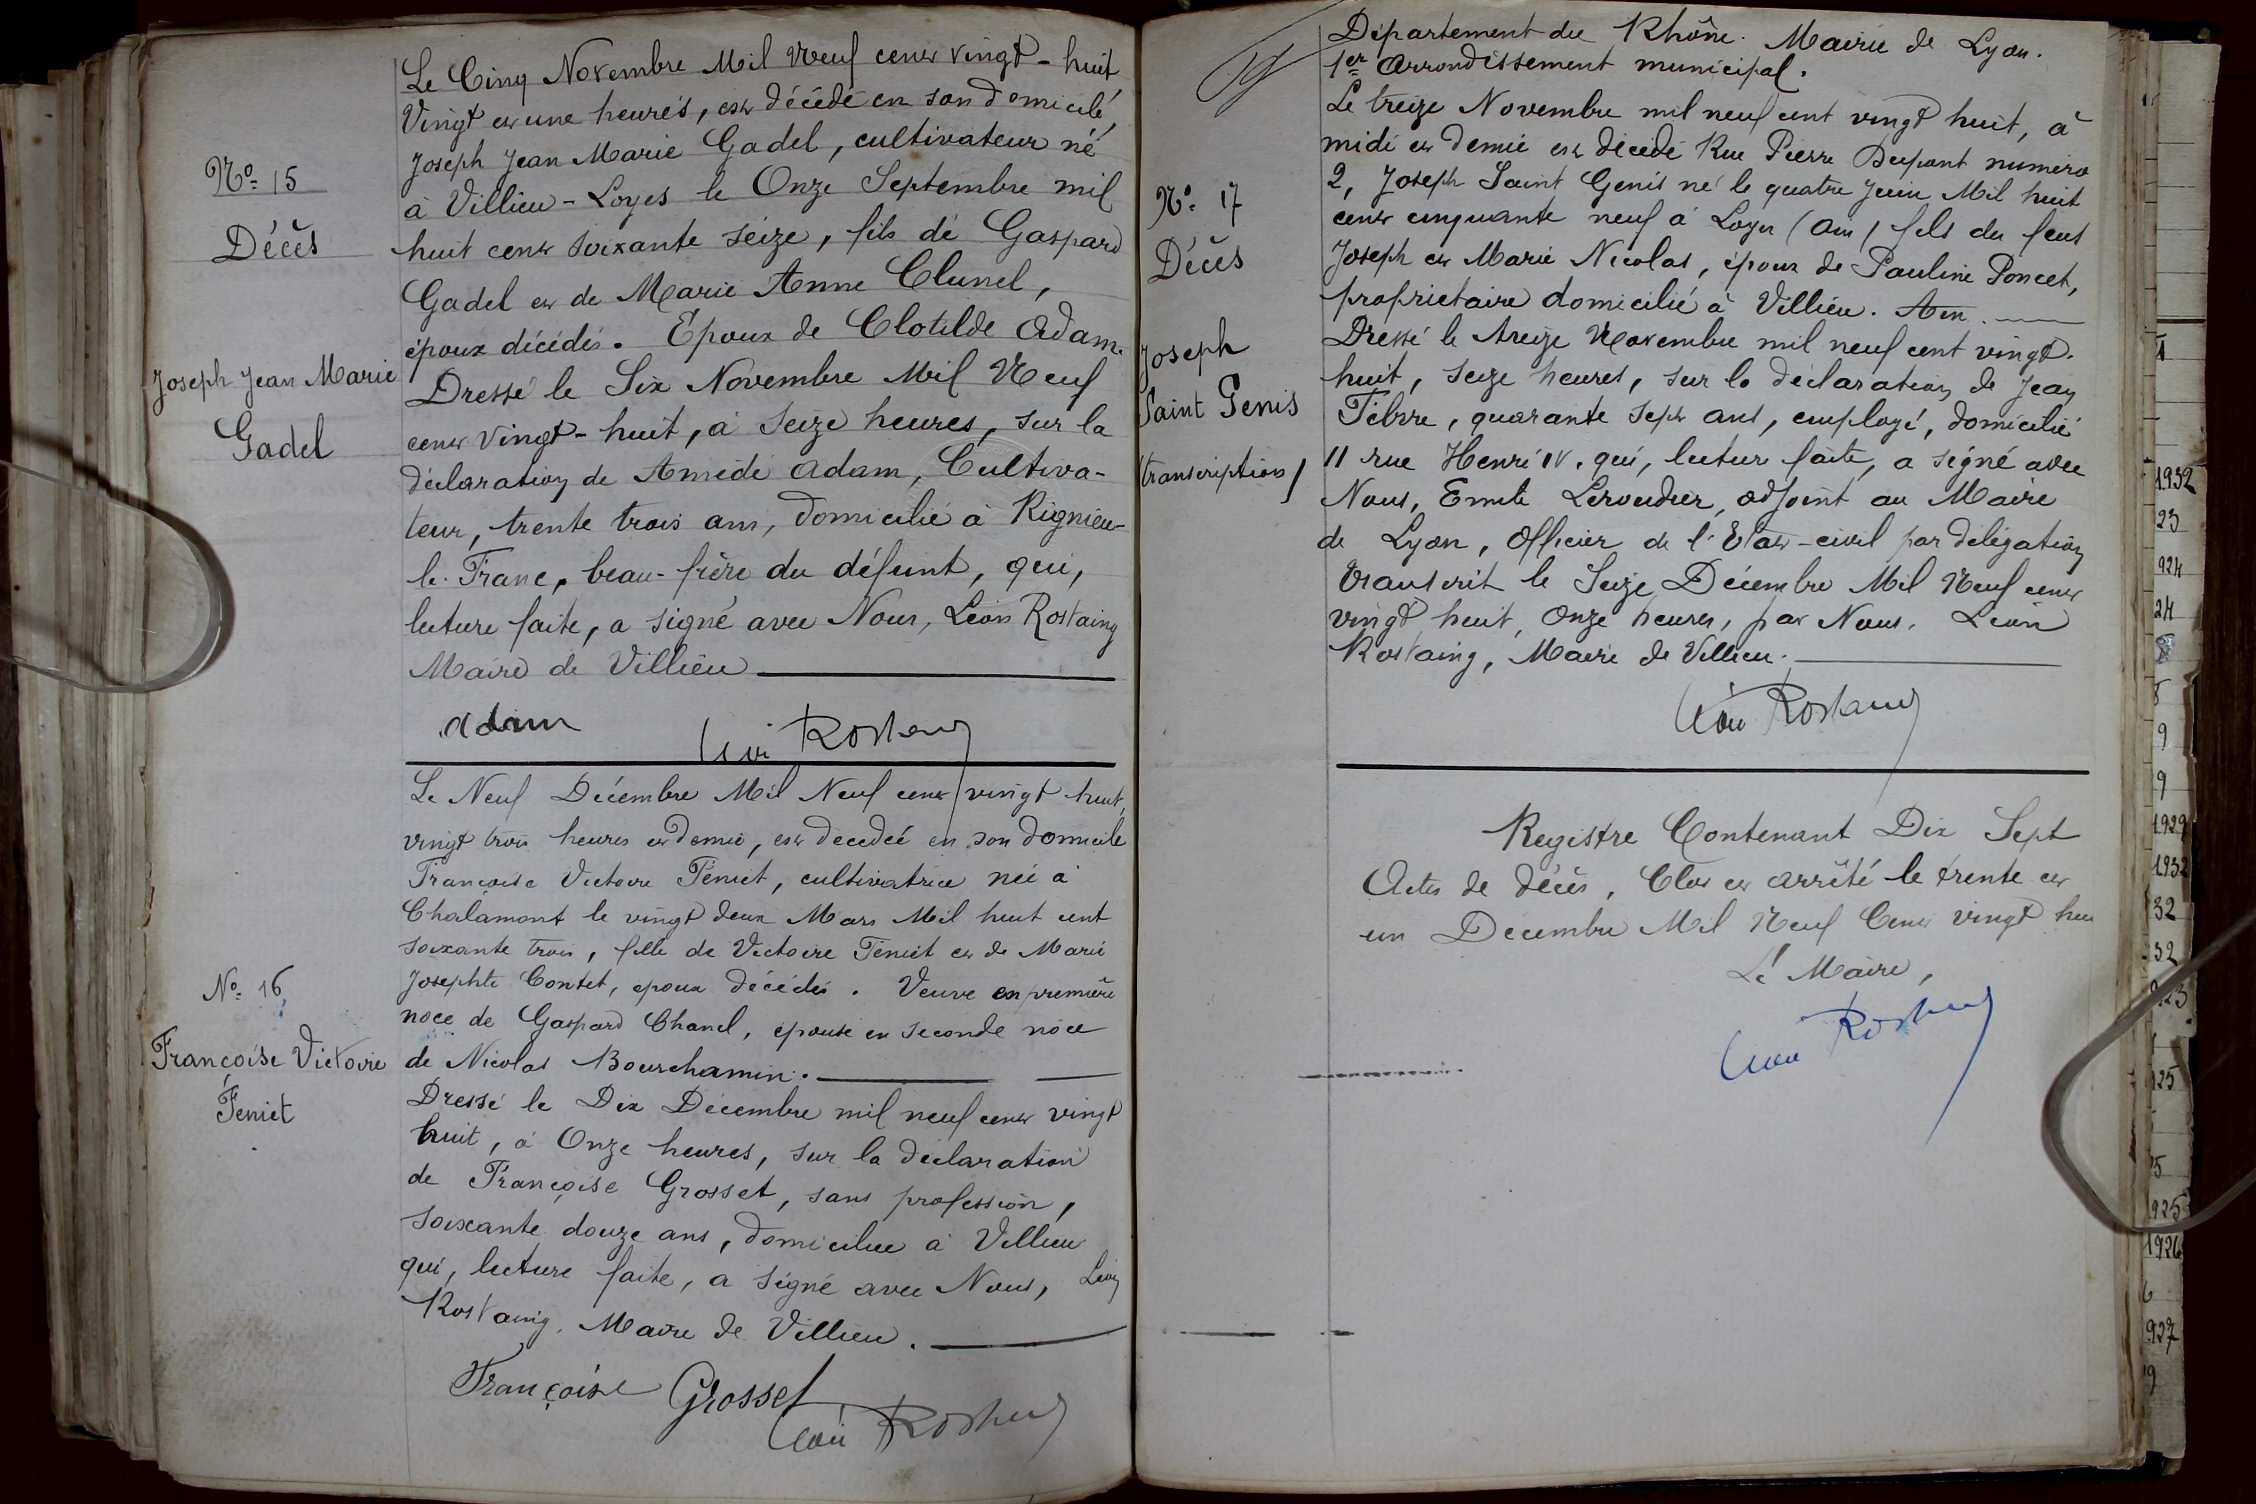 Nº 15
Décès
Joseph Jean Marie
Gadel
Le Cinq Novembre Mil Neuf cent vingt-huit,
Vingt et une heures, est décédé en son domicile,
Joseph Jean Marie Gadel, cultivateur né
à Villieu-Loyes le Onze Septembre mil
huit cent soixante seize, fils de Gaspard
Gadel et de Marie Anne Clunel,
époux décédés. Époux de Clotilde Adam.
Dressé le Six Novembre Mil Neuf
cent vingt-huit, à Seize heures, sur la
déclaration de Amédé Adam, Cultiva-
teur, trente trois ans, domicilié à Rignieu-
le-Franc, beau-frère du défunt, qui,
lecture faite, a signé avec Nous, Léon Rostaing
Maire de Villieu
Adam
Léon Rostaing
Nº 16
Françoise Victoire
Féniet
Le Neuf Décembre Mil Neuf cent vingt huit,
vingt trois heures et demie, est décedeé en son domicile
Françoise Victoire Féniet, cultivatrice née à
Chalamont le vingt deux Mars Mil huit cent
soixante trois, fille de Victoire Féniet et de Marie
Josephte Contet, époux décédés. Veuve en première
noce de Gaspard Chanel, épouse en seconde noce
de Nicolas Bourchamin.
Dressé le Dix Décembre mil neuf cent vingt
huit, à Onze heures, sur la déclaration
de Françoise Grosset, sans profession,
soixante douze ans, domiciliée à Villieu
qui, lecture faite, a signé avec Nous, Léon
Rostaing, Maire de Villieu.
Françoise Grosset
Léon Rostaing
Nº 17
Décès
Joseph
Saint Genis
(transcription)
Département du Rhône. Mairie de Lyon.
1er Arrondissement municipal.
Le treize Novembre mil neuf cent vingt huit, à
midi et demie est décédé Rue Pierre Dupont numéro
2, Joseph Saint Genis né le quatre Juin Mil huit
cent cinquante neuf à Loyes (Ain) fils de feus
Joseph et Marie Nicolas, époux de Pauline Poncet,
propriétaire domicilié à Villieu. Ain.
Dressé le treize Novembre mil neuf cent vingt-
huit, seize heures, sur la déclaration de Jean
Febvre, quarante sept ans, employé, domicilié
11 rue Henri IV. qui, lecture faite, a signé avec
Nous, Emile Leroudier, adjoint au Maire
de Lyon, Officier de l'Etat-civil par délégation
Transcrit le Seize Décembre Mil Neuf cent
vingt huit, Onze heures, par Nous, Léon
Rostaing, Maire de Villieu.
Léon Rostaing
Registre Contenant Dix Sept
Actes de décès, Clos et arrêté le trente et
un Décembre Mil Neuf Cent vingt hui
Le Maire,
Léon Rostaing
1932
23
924
24
9
9
1929
1932
32
32
923
925
25
925
1926
6
927
9